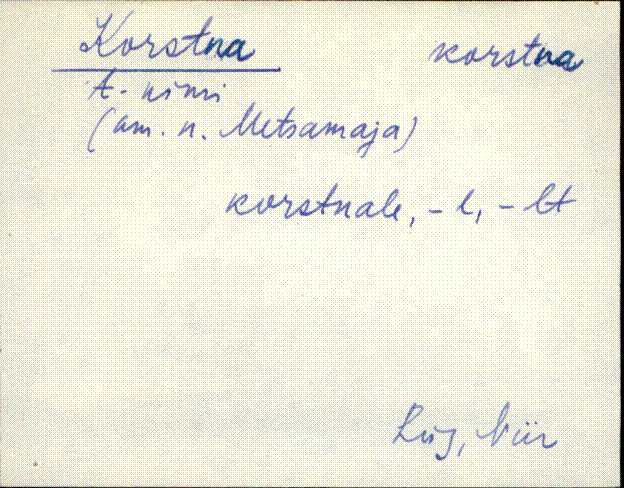 Korstna korstna
t. nimi
(am. n. Metsamaja)
korstnale, -l, -lt
Lüg, Viir